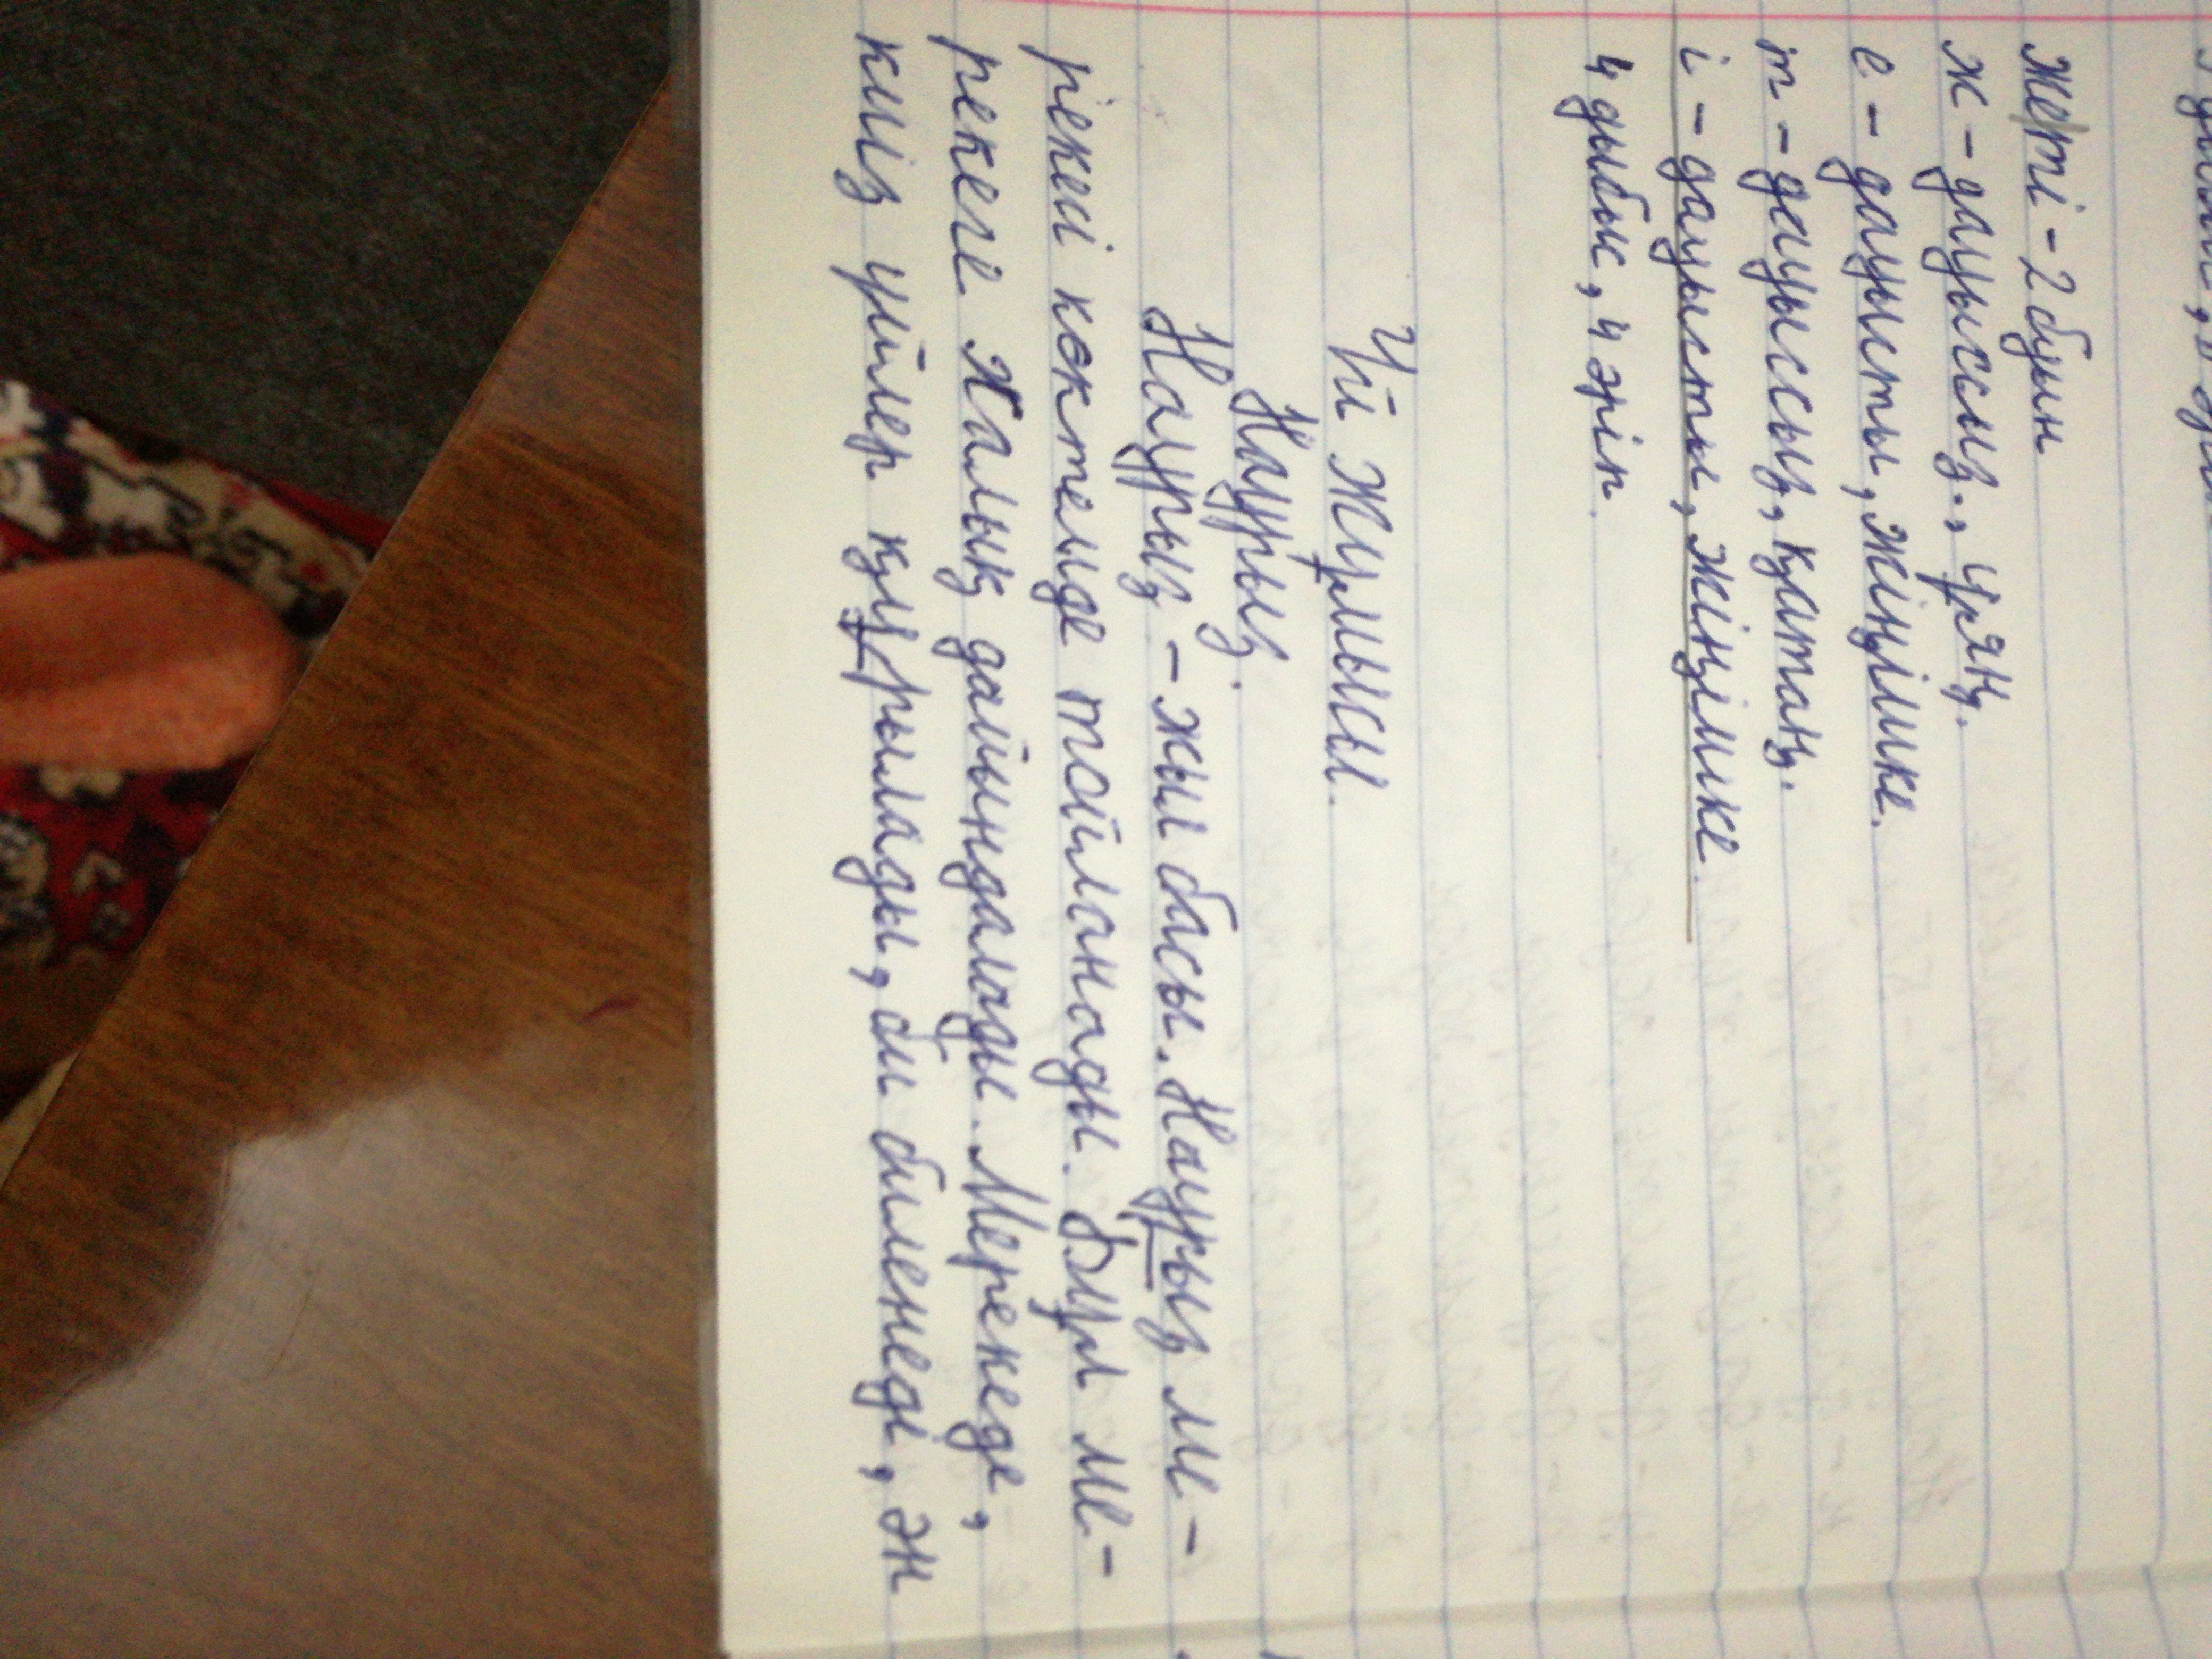 же/ті - 2 буын
ж - дауыссыз., ұяң.
е - дауысты, жіңішке.
т - дауыссыз, қатаң.
і - дауысты, жіңішке.
4 дыбыс, 4 әріп.
Үй жұмысы.
Наурыз.
Наурыз - жыл басы. Наурыз м-
рекесі көктемде тойланады. Бұл ме-
рекеге халық дайындалады. Мерекеде,
киіз үйлер құрылады, ән биленеді, ән